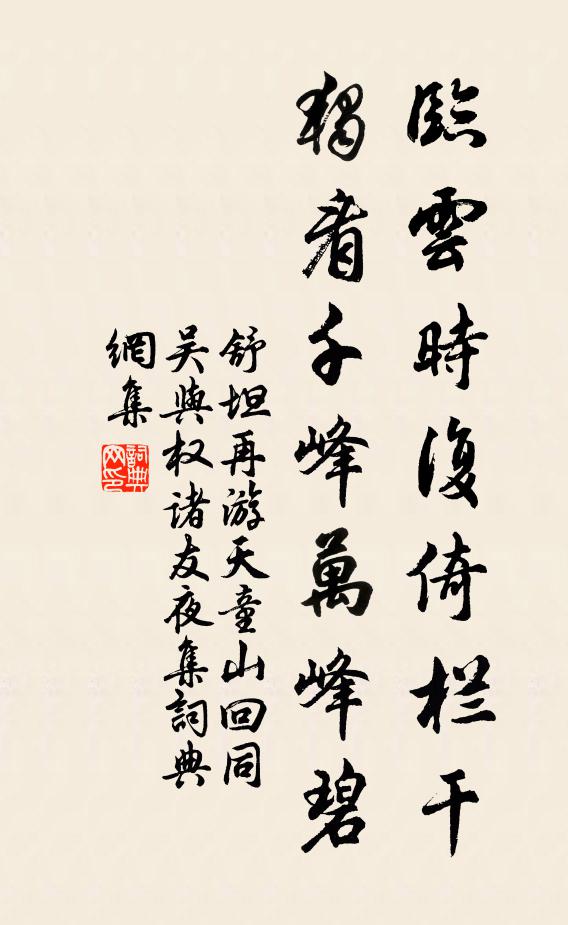 臨雲時復倚栏干
獨看千峰萬峰碧
舒坦再游天童山回同
吴與权诸友夜集詞典
網集
詞典網印